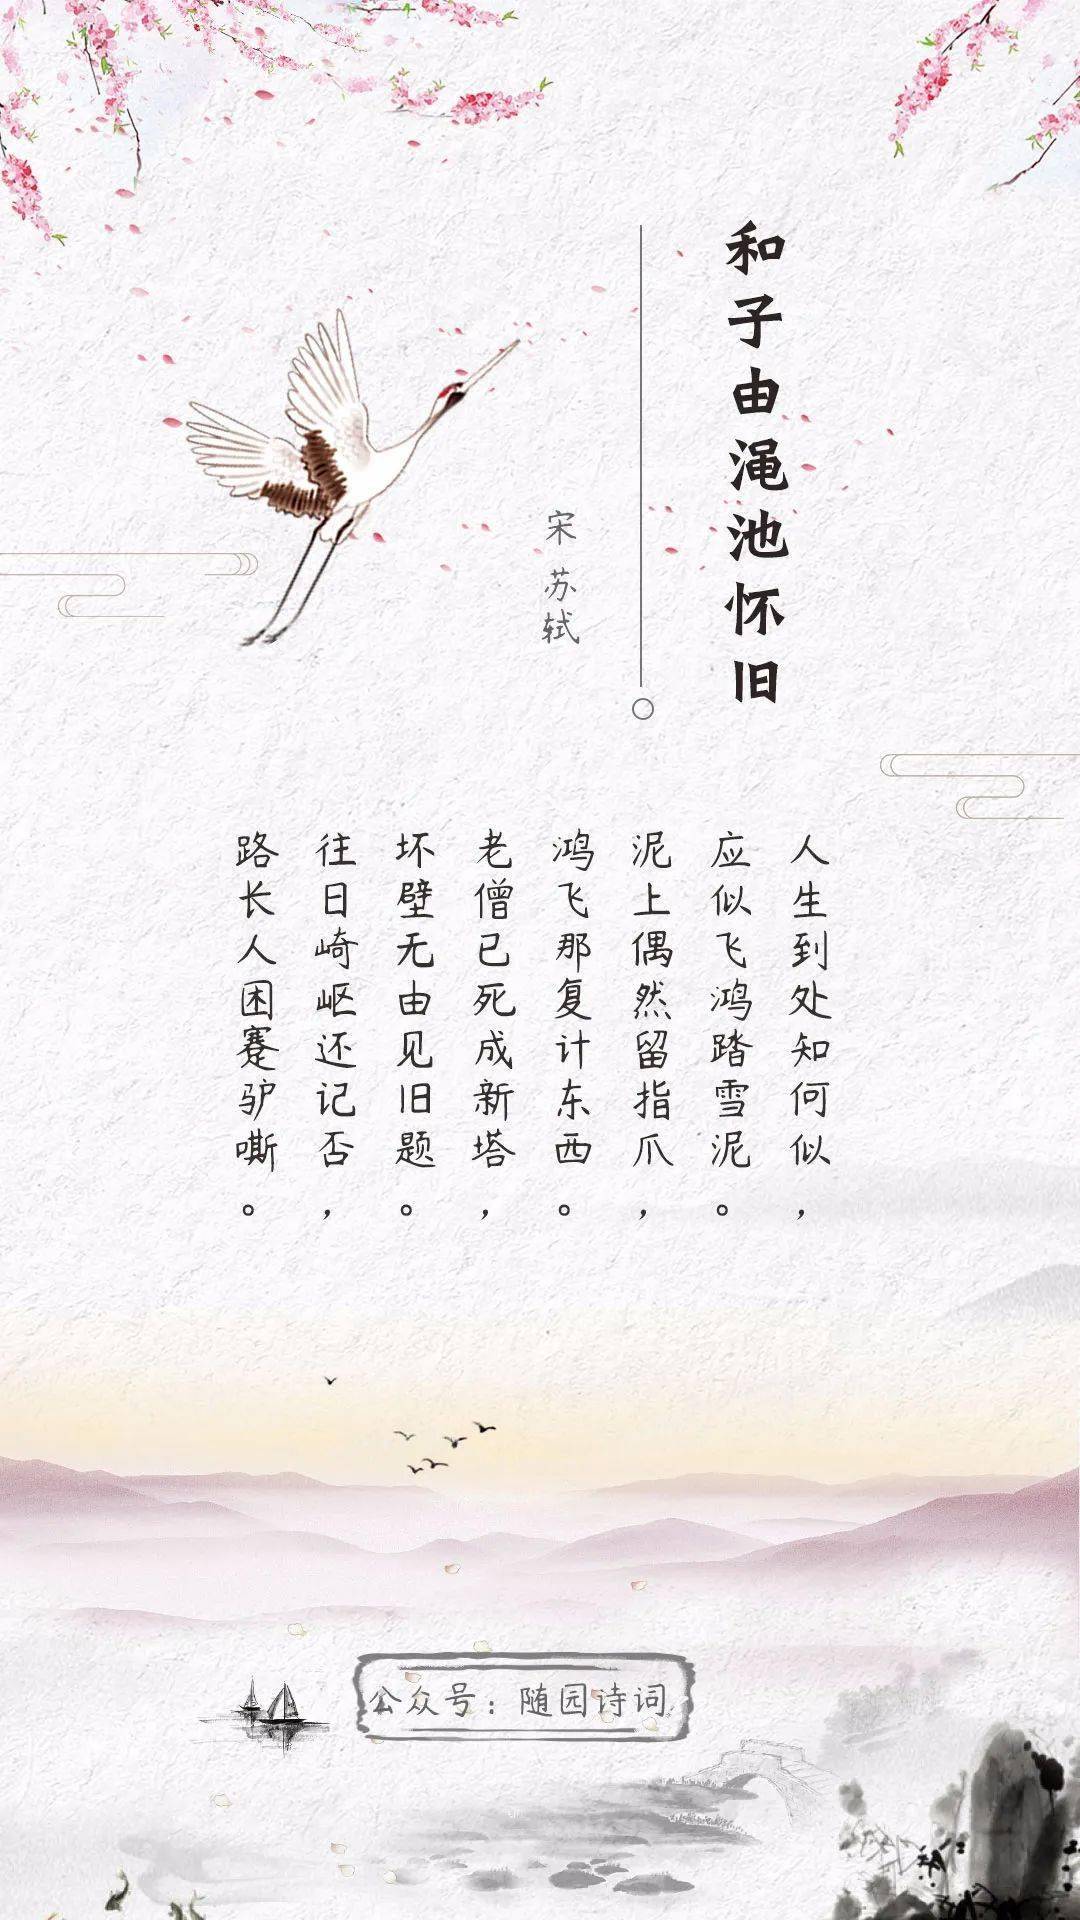 和子由渑池怀旧
宋 苏轼
人生到处知何似，
应似飞鸿踏雪泥。
泥上偶然留指爪，
鸿飞那复计东西。
老僧已死成新塔，
坏壁无由见旧题。
往日崎岖还记否，
路长人困蹇驴嘶。
公众号：随园诗词